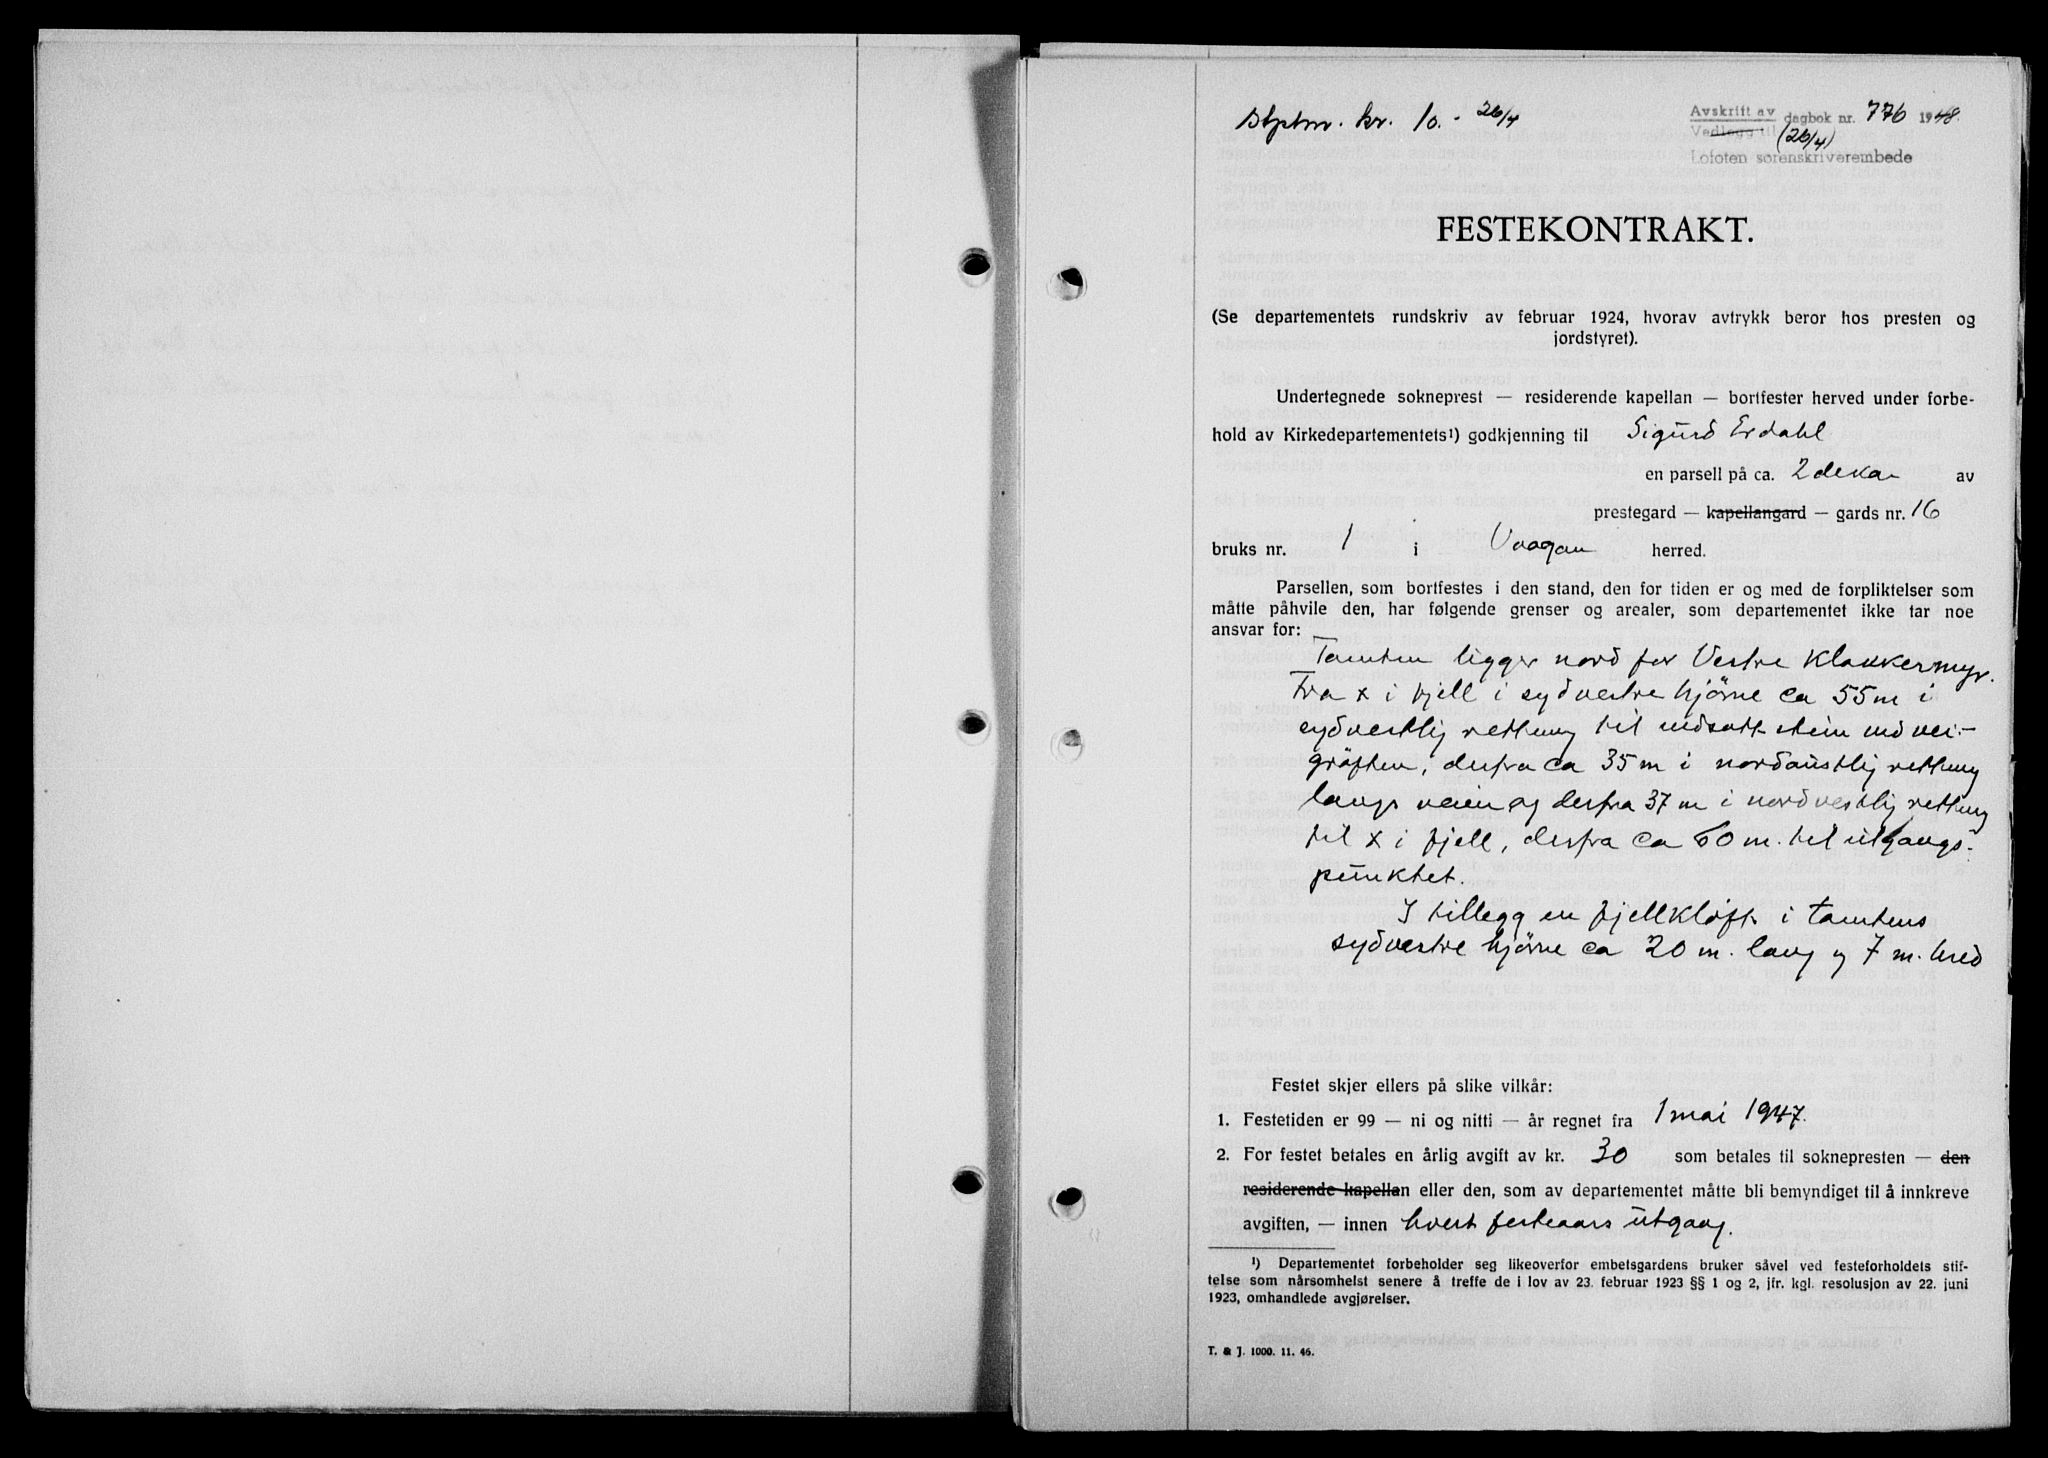 Stptm. kr. 10.- 26/4
Avskrift av dagbok nr. 776 1948.
Vedlegg til (26/4)
Lofoten sorenskriverembede
FESTEKONTRAKT.
(Se departementets rundskriv av februar 1924, hvorav avtrykk beror hos presten og
jordstyret).
Undertegnede sokneprest — residerende kapellan — bortfester herved under forbe-
hold av Kirkedepartementets¹) godkjenning til Sigurd Erdahl
en parsell på ca. 2 dekar av
prestegard — kapellangard — gards nr. 16
bruks nr. 1 i Vaagan herred.
Parsellen, som bortfestes i den stand, den for tiden er og med de forpliktelser som
måtte påhvile den, har følgende grenser og arealer, som departementet ikke tar noe
ansvar for:
Tomten ligger nord for Vestre Klakkermyr.
Fra x i fjell i sydvestre hjörne ca 55 m i
sydvestlig rettung til nedsatt stein ved vei-
gröften, derfra ca 35 m i nordaustlig rettung
langs veien og derfra 37 m i nordvestlig rettung
til x i fjell, derfra ca 60 m. til utgangs-
punktet.
I tillegg en fjellkløft i tomtens
sydvestre hjörne ca 20 m. lang og 7 m. bred
Festet skjer ellers på slike vilkår:
1. Festetiden er 99 — ni og nitti — år regnet fra 1 mai 1947.
2. For festet betales en årlig avgift av kr. 30 som betales til soknepresten — den
residerende kapellan eller den, som av departementet måtte bli bemyndiget til å innkreve
avgiften, — innen hvert festeaars utgang.
¹) Departementet forbeholder seg likeoverfor embetsgardens bruker såvel ved festeforholdets stif-
telse som nårsomhelst senere å treffe de i lov av 23. februar 1923 §§ 1 og 2, jfr. kgl. resolusjon av 22. juni
1923, omhandlede avgjørelser.
T. & J. 1000. 11. 46.